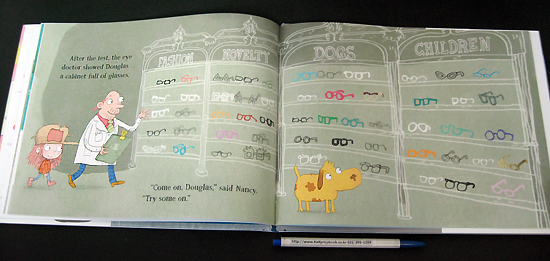 After the test, the eye
doctor showed Douglas
a cabinet full of glasses.
FASHION
NOVELTY
DOGS
CHILDREN
"Come on, Douglas," said Nancy.
"Try some on."